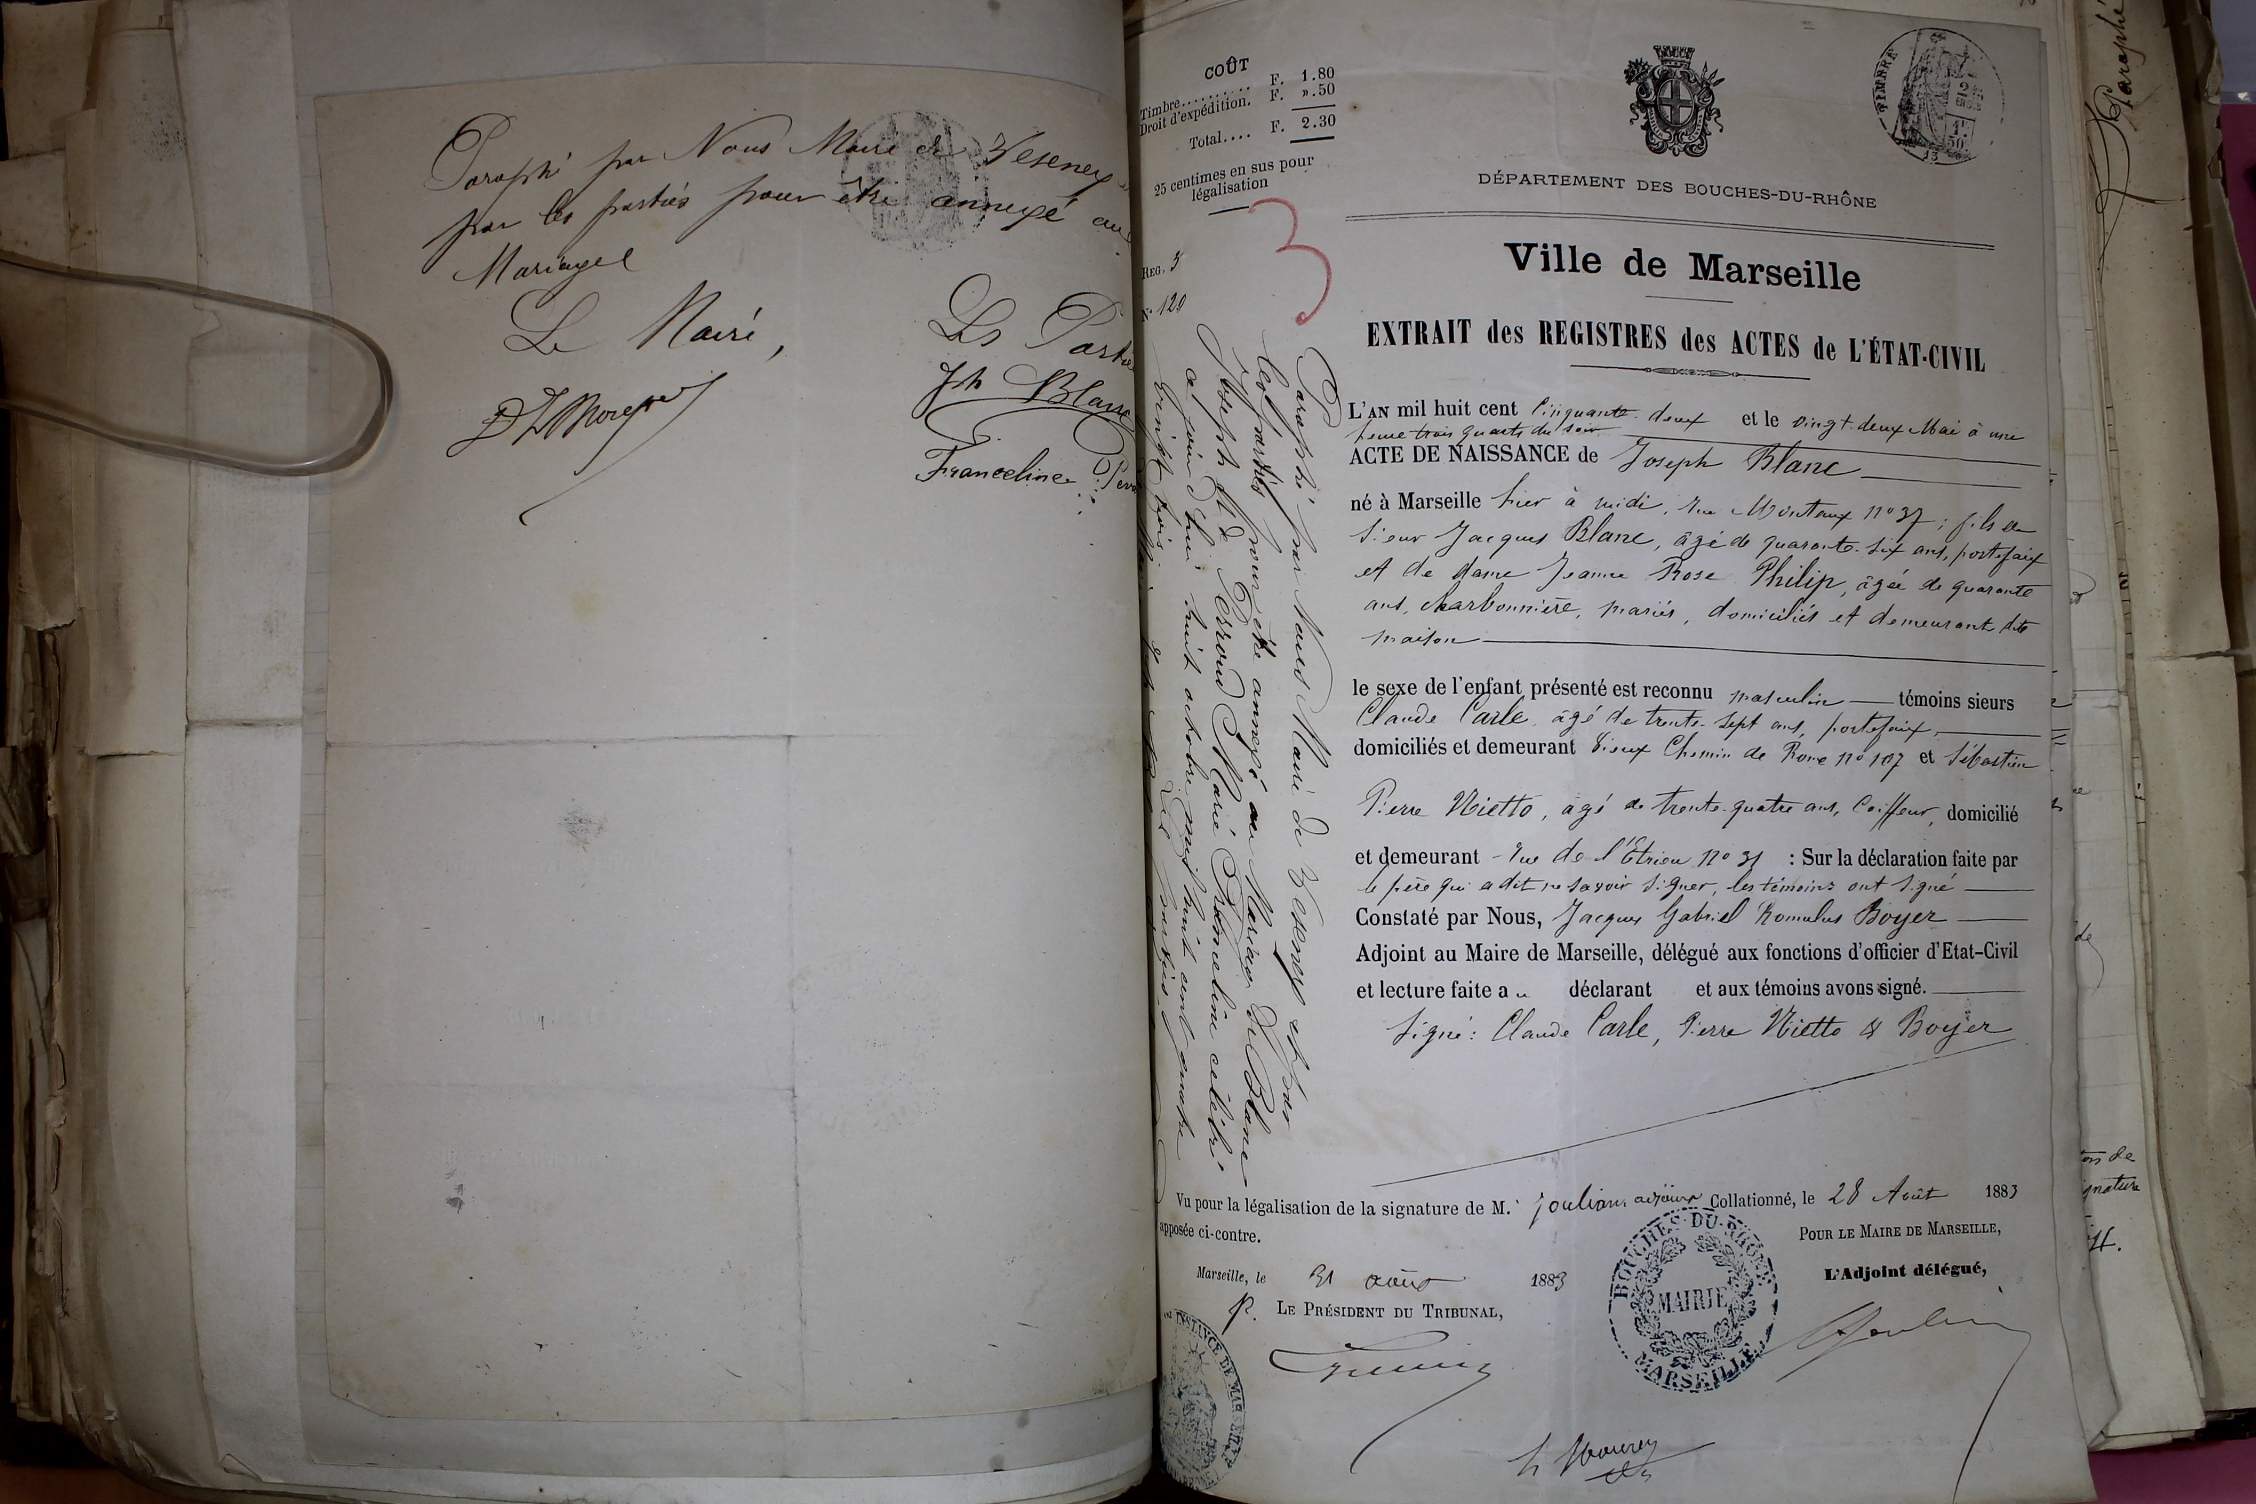 Paraphé par Nous Maire de Vesenex et
par les parties pour être annexé au
Mariage
Le Maire,
Les Parties
Jph Blanc
Franceline
COÛT
Timbre.......... F. 1.80
Droit d'expédition. F. ».50
Total.... F. 2.30
25 centimes en sus pour
légalisation
3
REG. 5
N° 120
Paraphé par Nous Maire de Vesenex et par
les parties pour être annexé au Mariage de Blanc
Joseph et de Perroud Marie Franceline célébré
ce jourd'hui huit octobre mil huit cent quatre
vingt trois
TIMBRE
DÉPARTEMENT DES BOUCHES-DU-RHÔNE
Ville de Marseille
EXTRAIT des REGISTRES des ACTES de L'ÉTAT-CIVIL
L'AN mil huit cent Cinquante-deux et le vingt-deux Mai à une
heure trois quarts du soir
ACTE DE NAISSANCE de Joseph Blanc
né à Marseille hier à midi, rue Montaux n° 37; fils de
Sieur Jacques Blanc, âgé de quarante-six ans, portefaix
et de dame Jeanne Rose Philip, âgée de quarante
ans, charbonnière, mariés, domiciliés et demeurant dite
maison
le sexe de l'enfant présenté est reconnu masculin témoins sieurs
Claude Carle, âgé de trente-sept ans, portefaix,
domiciliés et demeurant Vieux Chemin de Rome n° 107 et Sébastien
Pierre Nietto, âgé de trente-quatre ans, Coiffeur, domicilié
et demeurant rue de l'Etrieu n° 31 : Sur la déclaration faite par
le père qui a dit ne savoir signer, les témoins ont signé
Constaté par Nous, Jacques Gabriel Romulus Boyer
Adjoint au Maire de Marseille, délégué aux fonctions d'officier d'Etat-Civil
et lecture faite au déclarant et aux témoins avons signé.
Signé: Claude Carle, Pierre Nietto & Boyer
Vu pour la légalisation de la signature de M. Joulian adjoint
apposée ci-contre.
Collationné, le 28 Août 1883
POUR LE MAIRE DE MARSEILLE,
L'Adjoint délégué,
Marseille, le 31 août 1883
p. LE PRÉSIDENT DU TRIBUNAL,
BOUCHES-DU-RHÔNE
MAIRIE
MARSEILLE
INSTANCE DE MARSEILLE
Paraphé